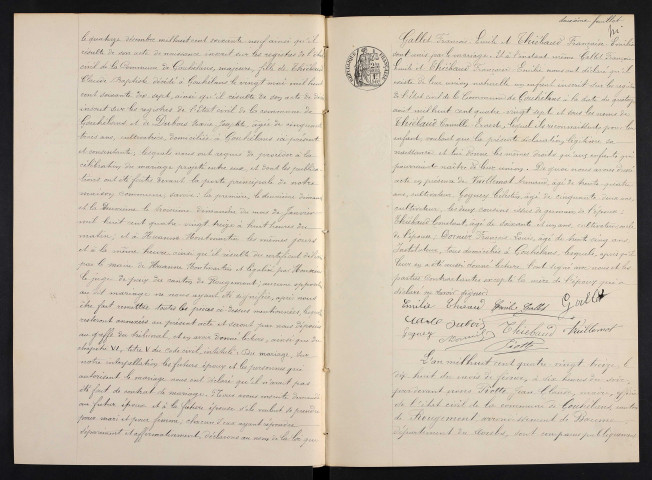 le quatorze décembre mil huit cent soixante neuf ainsi qu'il
résulte de son acte de naissance inscrit sur les registres de l'état
civil de la commune de Gouhelans, majeure, fille de Thiébaud
Claude Baptiste décédé à Gouhelans le vingt août mil huit
cent soixante dix sept, ainsi qu'il résulte de son acte de décès
inscrit sur les registres de l'Etat civil de la commune de
Gouhelans et de Josèphe, âgée de cinquante
trois ans, cultivatrice, domiciliée à Gouhelans ici présente
et consentante; lesquels nous ont requis de procéder à la
célébration du mariage projeté entre eux, et dont les publica-
tions ont été faites devant la porte principale de notre
maison commune, savoir: la première, le deuxième dimanche
et la deuxième le troisième dimanche du mois de Janvier
mil huit cent quatre vingt treize à huit heures du
matin, et à les mêmes jours
et à la même heure, ainsi qu'il résulte du certificat délivré
par le maire de et légalisé par Monsieur
le juge de paix du canton de Rougemont, aucune opposition
au dit mariage ne nous ayant été signifiée, après nous
être fait remettre toutes les pièces ci dessus mentionnées, lesquelles
resteront annexées au présent acte et seront par nous déposées
au greffe du tribunal, et en avoir donné lecture, ainsi que du
chapitre VI, titre V du code civil, intitulé: Du mariage, sur
notre interpellation les futurs époux et les personnes qui
autorisent le mariage nous ont déclaré qu'il n'avait pas
été fait de contrat de mariage. Nous avons ensuite demandé
au futur époux et à la future épouse s'ils veulent se prendre
pour mari et pour femme, chacun d'eux ayant répondu
séparément et affirmativement, déclarons au nom de la loi que
deuxième feuillet
Gallet François Emile et Thiébaud Françoise Emilie
sont unis par le mariage. Et à l'instant même Gallet François
Emile et Thiébaud Françoise Emilie nous ont déclaré qu'il
existe de leur union naturelle un enfant inscrit sur les registres
de l'état civil de la commune de Gouhelans à la date du quatorze
août mil huit cent quatre vingt sept et sous les noms de
Thiébaud Camille Ernest, lequel ils reconnaissent pour leur
enfant, voulant que la présente déclaration légitime sa
naissance et lui donne les mêmes droits qu'aux enfants qui
pourraient naître de leur union. De quoi nous avons dressé
acte en présence de Vuillemot âgé de trente quatre
ans, cultivateur, Gogney Célestin, âgé de cinquante deux ans,
cultivateur, les deux cousins issus de germain de l'époux;
Thiébaud Constant, âgé de soixante et un ans, cultivateur oncle
de l'épouse; François Louis, âgé de trente cinq ans
Instituteur, tous domiciliés à Gouhelans, lesquels, après qu'il
leur en a été aussi donné lecture, l'ont signé avec nous et les
parties contractantes excepté la mère de l'épouse qui a
déclaré ne savoir signer.
Emilie Thiébaud Emile Gallet Gallet
Gogney Thiébaud Vuillemot
Piotte
L'an mil huit cent quatre vingt treize, le
dix huit du mois de à dix heures du soir,
par devant nous Piotte Jean Claude, maire, officier
de l'état civil de la commune de Gouhelans, canton
de Rougemont arrondissement de Baume
département du Doubs, sont comparus